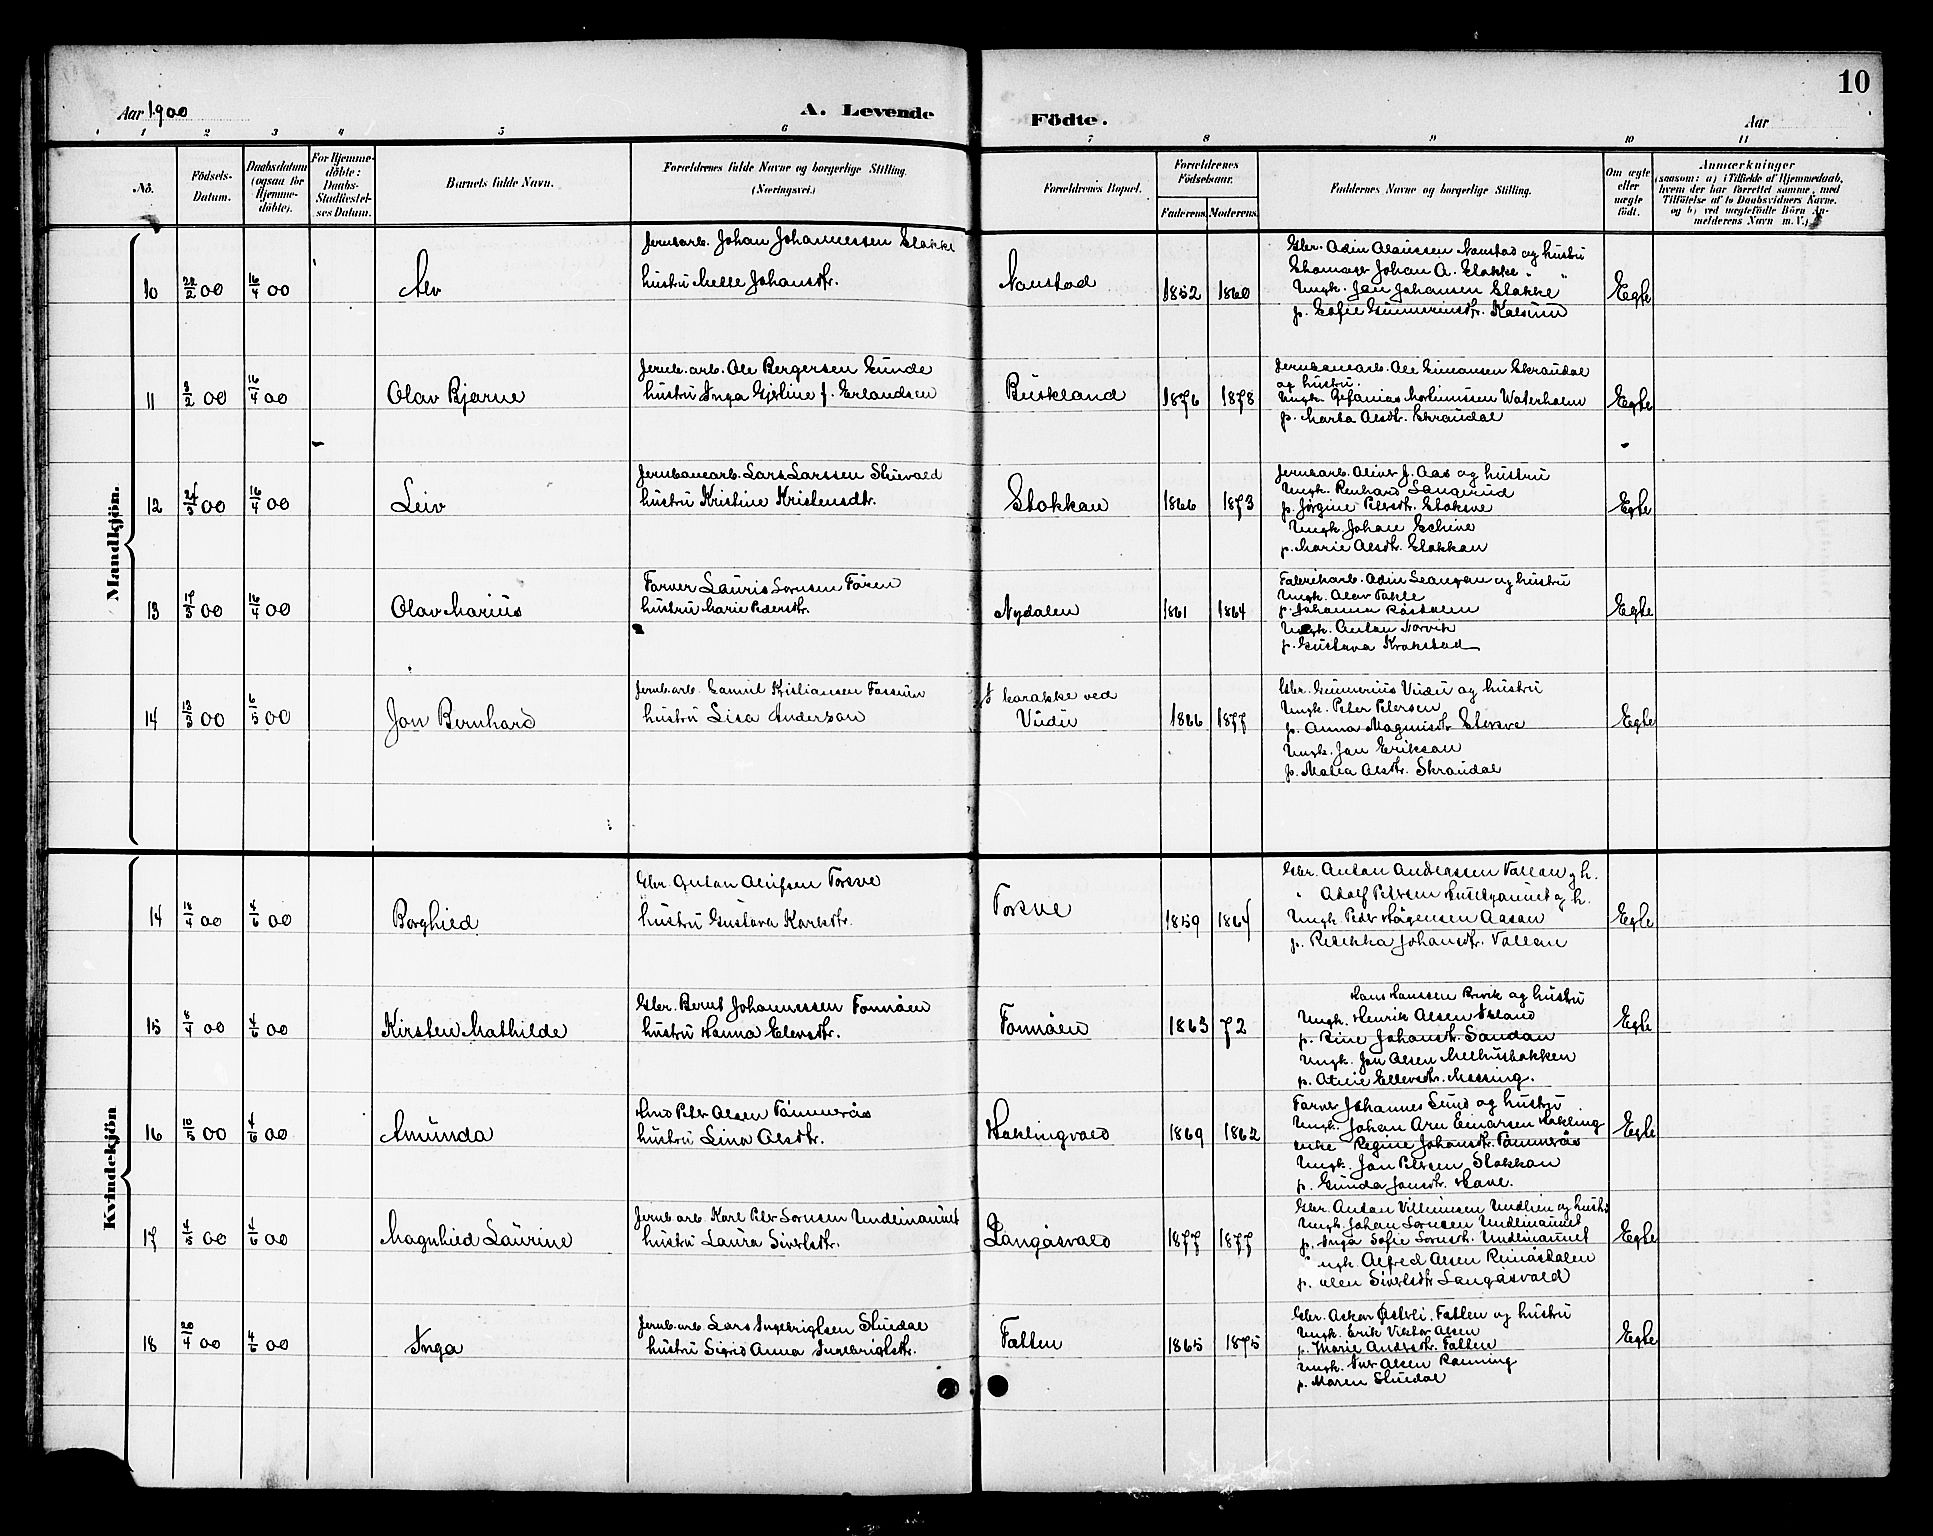 10
Aar 1900
A. Levende
Födte.
Aar
1 2 3 4 5 6 7 8 9 10 11
No.
Födsels-
Datum.
Daabsdatum
(ogsaa for
Hjemme-
döbte).
For Hjemme-
döbte:
Daabs-
Stadfæstel-
ses Datum.
Barnets fulde Navn.
Forældrenes fulde Navne og borgerlige Stilling.
(Næringsvei.)
Forældrenes Bopæl.
Forældrenes
Födselsaar.
Faderens. Moderens.
Faddernes Navne og borgerlige Stilling.
Om ægte
eller
uægte
födt.
Anmærkninger
(saasom: a) i Tilfælde af Hjemmedaab,
hvem der har forrettet samme, med
Tilföielse af to Daabsvidners Navne.
og b) ved uægtefödte Börn An-
melderens Navn m. V.)
Mandkjön.
10 22/2 00 16/4 00
Jernbarb. Johan Johannessen Stokke
hustru Melle Johansdtr.
Naustad
1852 1860
Gbr. Odin Olaussen Naustad og hustru
Johan A. Stokke " "
Ungk. Jon Johansen Stokke
p. Sofie Gunneriusdtr. Kalsund
Egte
11 3/2 00 16/4 00
Olav Bjarne
Jernb. arb. Ole Bergersen Sunde
hustru Inga Gjerline f. Erlandsen
Buskland
1876 1878
Jernbanearb. Ole Simonsen Skraudal
og hustru.
Ungk. Zefanias Waterholm
p. Marta Olsdtr. Skraudal
Egte
12 16/4 00
Leiv
Jernbanearb. Lars Larssen
hustru Kristine Kristensdtr.
Stokkan
1866 1873
Jernbarb. Oliver J. Aas og hustru
Ungk. Renhard Langerud
p. Jørgine Petersdtr. Stoksve
Ungk. Johan Schive
p. Marie Olsdtr. Stokkan
Egte
13 17/3 00 16/4 00
Olav Marius
Farver Lauris Sørensen Faren
hustru Marie Pedersdtr.
Nydalen
1861 1864
Fabrikarb. Odin Leangen og hustru
Ungk. Olav Fahle
p. Johanna Røstalen
Ungk. Anton Norvik
p. Gustava Krokstad
Egte
14 6/5 00
Jon Bernhard
Jernb. arb. Samuel Kristiansen Fossum
hustru Lisa Anderson
barakke ved
Vudu
1866 1877
Gbr. Gunnerius Vudu og hustru
Ungk. Peter Petersen
p. Anna Magnusdtr.
Ungk. Jon Erikson
p. Malea Olsdtr. Skraudal
Egte
Kvindekjön
14 16/4 00 4/6 00
Borghild
Gbr. Anton Olufsen Torsve
hustru Gustava Karlsdtr.
Torsve
1859 1864
Gbr. Anton Anderssen Vallan og h.
" Adolf Petersen og h.
Ungk. Peder Hågensen Aasan
p. Rebekka Johansdtr. Vallan
Egte
15 5/4 00 4/6 00
Kirsten Mathilde
Gbr. Bernt Johannessen Fornøen
hustru Hanna Elevsdtr.
Fornøen
1863 72
Hans Hanssen Brevik og hustru
Ungk. Henrik Olsen
p. Rine Johansdtr. Sandan
Ungk. Jon Olsen Melhusbakken
p. Ellevsdtr. Messing.
Egte
16 15/5 00 4/6 00
Amunda
Hmd Peter Olsen Tømmerås
hustru Lina Olsdtr.
Haklingvald
1869 1862
Farver Johannes Sund og hustru
Ungk. Johan Arn Einarsen Hakling
enke Regine Johansdtr. Tømmerås
Ungk. Jon Petersen Stokkan
p. Gunda Jonsdtr. Have.
Egte
17 4/5 00 4/6 00
Magnhild Laurine
Jernb. arb. Karl Peter Sørensen Undlimannet
hustru Laura Sivertsdtr.
Langåsvald
1877 1877
Gbr. Anton Villumsen Undlien og hustru
Ungk. Johan Sørensen Undlimannet
p. Inga Sofie Sørensdtr. Undlimannet
Ungk. Alfred Olsen Reinåsdalen
p. Sivertsdtr Langåsvald
Egte
18 20/4 00 4/6 00
Inga
Jernb. arb. Lars Ingebrigtsen Sluedal
hustru Sigrid Anna Ingebrigtsdtr.
Fatten
1865 1875
Gbr. Oskar Østvli. Fatten og hustru
Ungk. Erik Viktor Olsen
p. Marie Andrsdtr. Fatten
Ungk. Olsen Rønning
p. Maren Sluedal
Egte